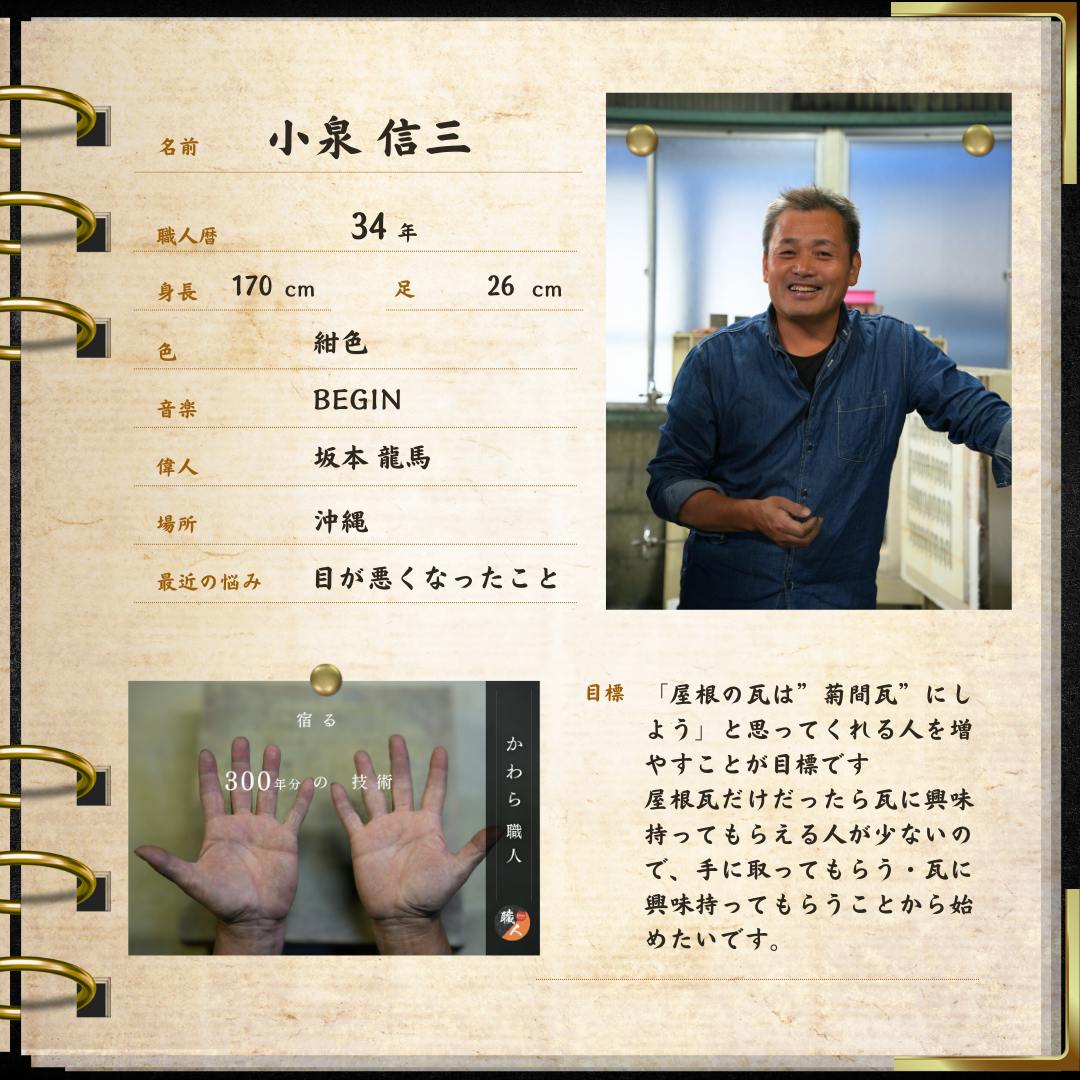 名前 小泉 信三
職人暦 34 年
身長 170 cm 足 26 cm
色 紺色
音楽 BEGIN
偉人 坂本 龍馬
場所 沖縄
最近の悩み 目が悪くなったこと
宿る
300年分 の 技術
かわら 職人
職人
目標 「屋根の瓦は”菊間瓦”にし
よう」と思ってくれる人を増
やすことが目標です
屋根瓦だけだったら瓦に興味
持ってもらえる人が少ないの
で、手に取ってもらう・瓦に
興味持ってもらうことから始
めたいです。